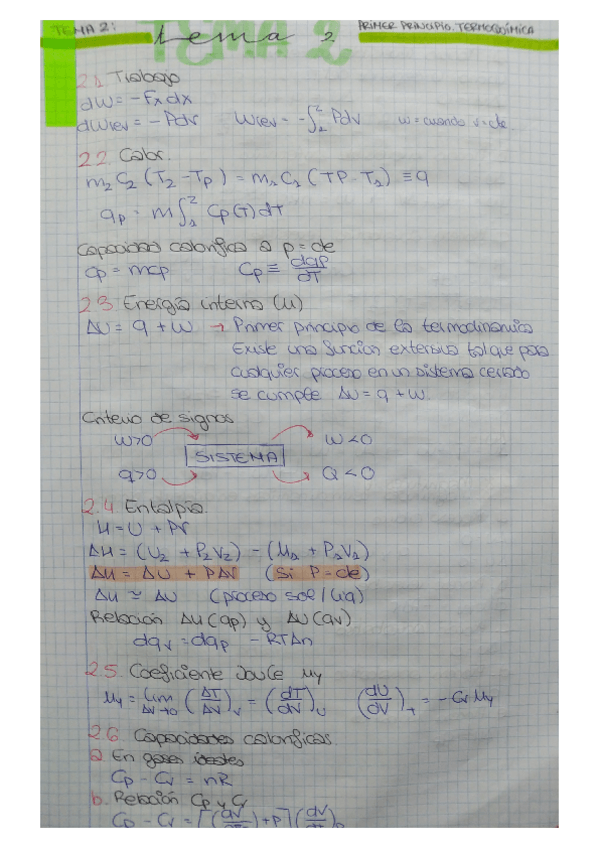 TEMA 2:
Tema 2
TEMA 2
PRIMER PRINCIPIO. TERMOQUÍMICA
2.1 Trabajo
dw = -Fx dx
dWrev = -Pdv    Wrev = -∫₁² Pdv    w = cuando v=cte.
2.2. Calor.
m₂C₂(T₂-Tp) = m₁C₁(TP-T₁) ≡ q
qp = m∫₁² Cp(T)dT
Capacidad calorífica a p=cte
Cp = mcp    Cp ≡ dqp/dT
2.3. Energía interna (U)
ΔU = q + w → Primer principio de la termodinámica
Existe una función extensiva tal que para
cualquier proceso en un sistema cerrado
se cumple ΔU = q + w.
Criterio de signos
W>0    W<0
SISTEMA
q>0    Q<0
2.4. Entalpía.
H = U + PV
ΔH = (U₂ + P₂V₂) - (U₁ + P₁V₁)
ΔH = ΔU + PΔV (Si P=cte)
ΔH ≃ ΔU (proceso sol/líq)
Relación ΔH(qp) y ΔU(qv)
dqv = dqp - RTΔn
2.5. Coeficiente Joule μJ
μJ = lim ΔV→0 (ΔT/ΔV)ᵥ = (dT/dV)U    (dU/dV)T = -Cv μJ
2.6 Capacidades caloríficas.
a. En gases ideales
Cp - Cv = nR
b. Relación Cp y Cv
Cp - Cv =